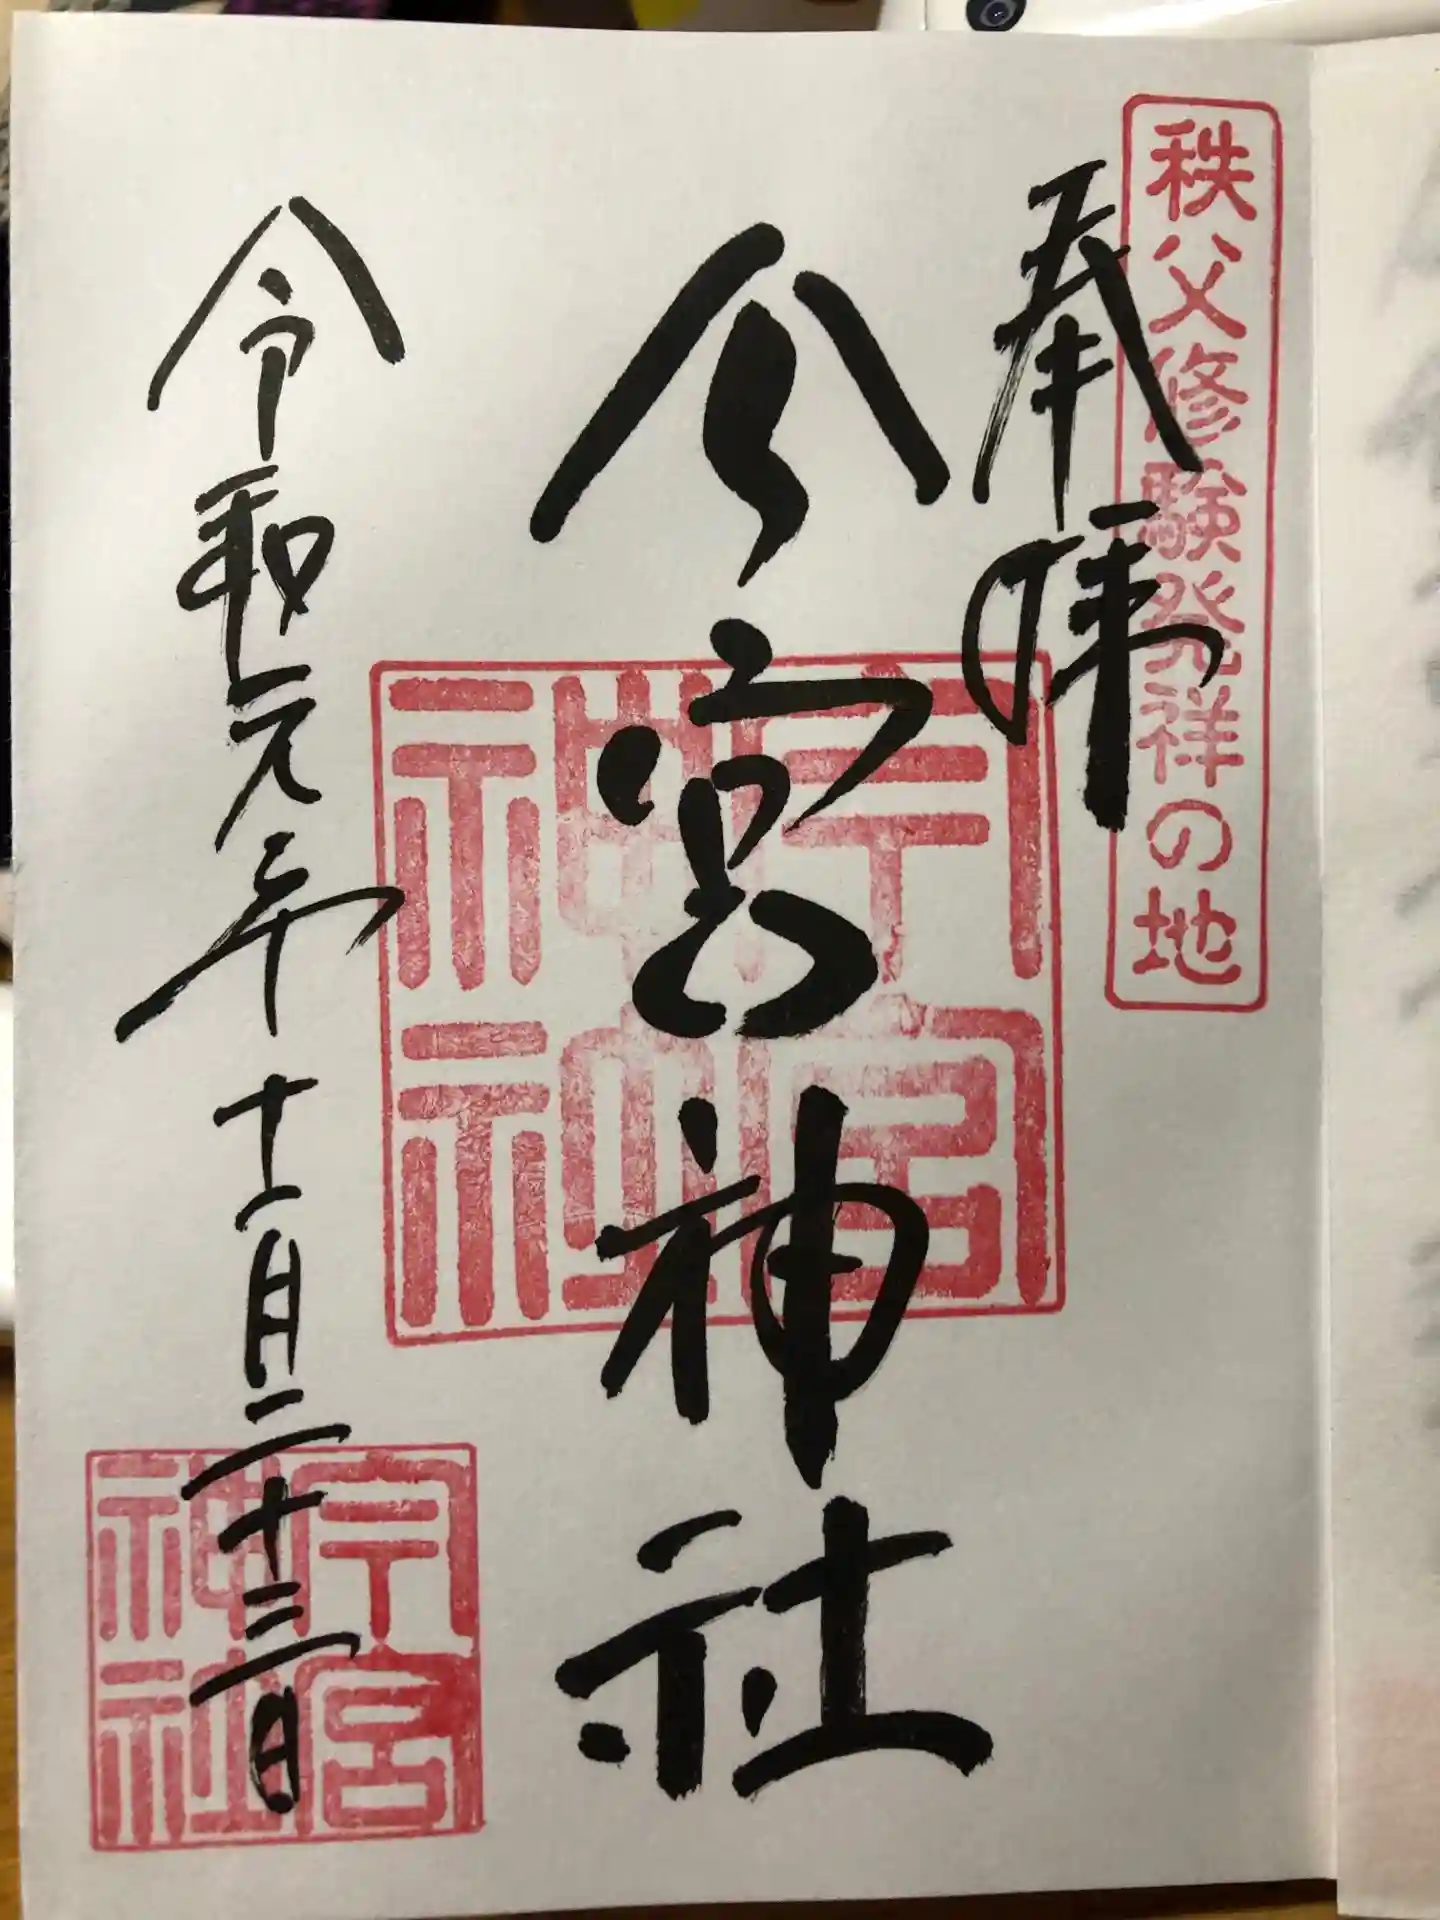 秩父修験発祥の地
奉拝
今宮神社
今宮
神社
令和元年十一月二十三日
今宮
神社